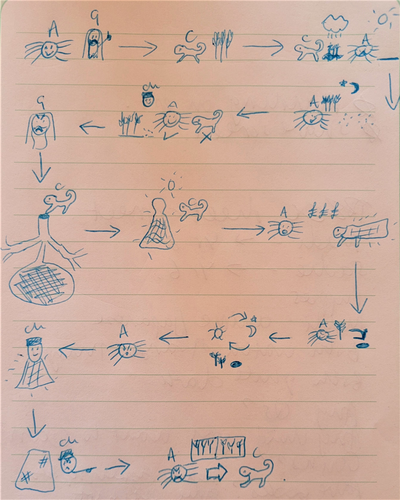 A G C C A
G ch A C A
C C A
ch A A
ch A C